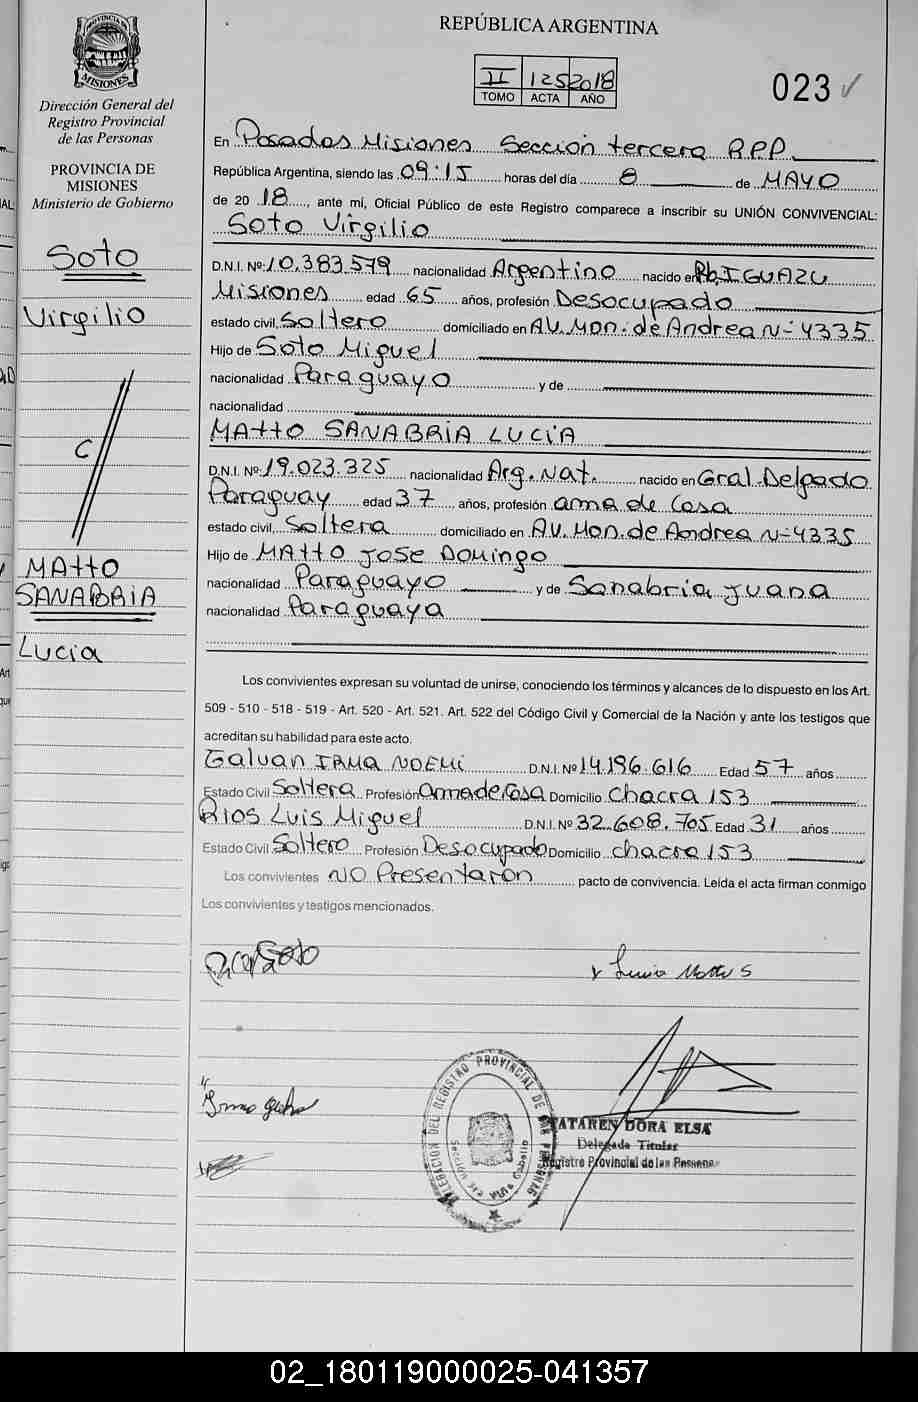 PROVINCIA DE
MISIONES
Dirección General del
Registro Provincial
de las Personas
PROVINCIA DE
MISIONES
Ministerio de Gobierno
Soto
Virgilio
C
MAttO
SANABRIA
Lucia
REPÚBLICA ARGENTINA
II 125 2018
TOMO ACTA AÑO
023
En Posadas Misiones Sección tercera R.P.P.
República Argentina, siendo las 09:15 horas del día 8 de MAYO
de 20 18, ante mí, Oficial Público de este Registro comparece a inscribir su UNIÓN CONVIVENCIAL:
Soto Virgilio
D.N.I. Nº: 10.383.579 nacionalidad Argentino nacido en Pto. IGUAZU
Misiones edad 65 años, profesión Desocupado
estado civil, Soltero domiciliado en AV. Mon. de Andrea Nº 4335
Hijo de Soto Miguel
nacionalidad Paraguayo y de
nacionalidad
MAttO SANABRIA LUCIA
D.N.I. Nº: 19.023.325 nacionalidad Arg. Nat. nacido en Gral. Delgado
Paraguay edad 37 años, profesión ama de Casa
estado civil, Soltera domiciliado en AV. Mon. de Andrea Nº 4335
Hijo de MAttO JOSE DOMINGO
nacionalidad Paraguayo y de Sanabria Juana
nacionalidad Paraguaya
Los convivientes expresan su voluntad de unirse, conociendo los términos y alcances de lo dispuesto en los Art.
509 - 510 - 518 - 519 - Art. 520 - Art. 521. Art. 522 del Código Civil y Comercial de la Nación y ante los testigos que
acreditan su habilidad para este acto.
Galvan IRMA NOEMI D.N.I. Nº 14.186.616 Edad 57 años
Estado Civil Soltera Profesión Ama de Casa Domicilio Chacra 153
Rios Luis Miguel D.N.I. Nº 32.608.705 Edad 31 años
Estado Civil Soltero Profesión Desocupado Domicilio Chacra 153
Los convivientes NO Presentaron pacto de convivencia. Leída el acta firman conmigo
Los convivientes y testigos mencionados.
Soto
Lucia Matto S
DELEGACION DEL REGISTRO PROVINCIAL DE LAS PERSONAS
TATAREN DORA ELSA
Delegada Titular
Registro Provincial de las Personas
02_180119000025-041357